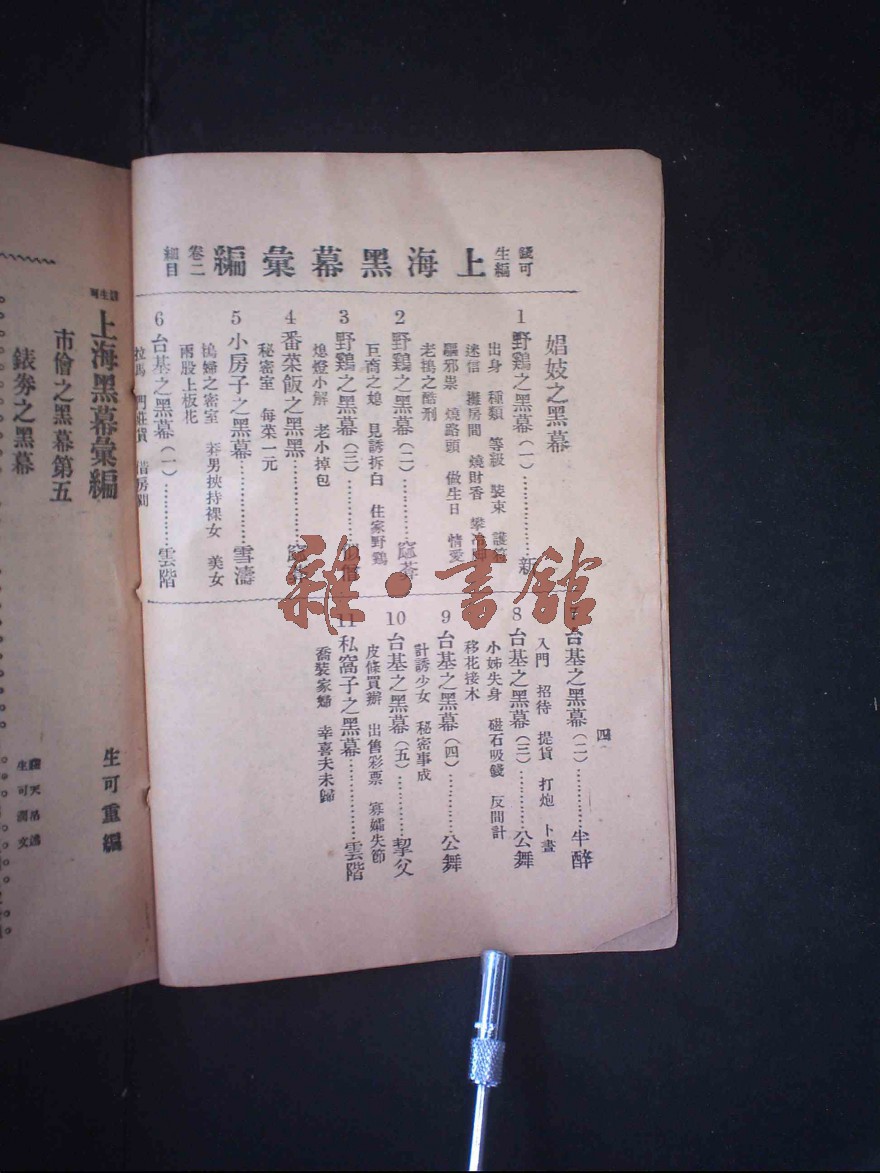 錢可生編
上海黑幕彙編
卷二細目
娼妓之黑幕
1 野鷄之黑幕(一)…………新
出身 種類 等級 裝束
迷信 攤房間 燒財香
驅邪祟 燒路頭 做生日 情愛
老鴇之酷刑
2 野鷄之黑幕(二)…………
巨商之媳 見誘拆白 住家野鷄
3 野鷄之黑幕(三)…………
熄燈小解 老小掉包
4 番菜飯之黑黑…………
秘密室 每菜一元
5 小房子之黑幕…………雪濤
鴇婦之密室 莽男挾持裸女 美女
兩股上板花
6 台基之黑幕(一)…………雲階
拉馬 門莊貨 借房間
四
7 台基之黑幕(二)…………半醉
入門 招待 提貨 打炮 卜晝
8 台基之黑幕(三)…………公舞
小姊失身 磁石吸鐵 反間計
移花接木
9 台基之黑幕(四)…………公舞
計誘少女 秘密事成
10 台基之黑幕(五)…………挈父
皮條買辦 出售彩票 寡孀失節
11 私窩子之黑幕…………雲階
喬裝家婦 幸喜夫未歸
雜·書館
上海黑幕彙編
生可重編
市儈之黑幕第五
錶劵之黑幕
生可潤文